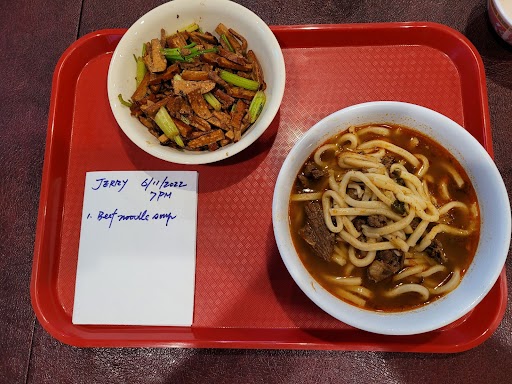 JERRY 6/11/2022
7PM
1. Beef noodle soup